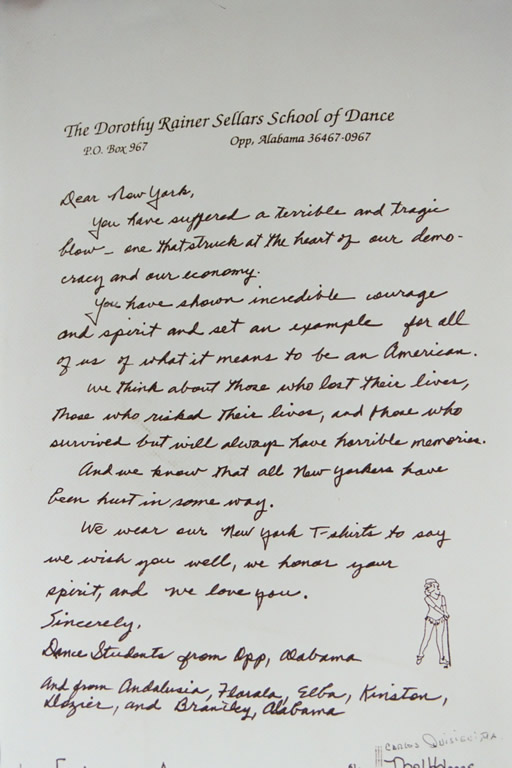 The Dorothy Rainer Sellars School of Dance
P.O. Box 967 Opp, Alabama 36467-0967
Dear New York,
You have suffered a terrible and tragic
blow - one that struck at the heart of our demo-
cracy and our economy.
You have shown incredible courage
and spirit and set an example for all
of us of what it means to be an American.
We think about those who lost their lives,
those who risked their lives, and those who
survived but will always have horrible memories.
And we know that all New Yorkers have
been hurt in some way.
We wear our New York T-shirts to say
we wish you well, we honor your
spirit, and we love you.
Sincerely,
Dance Students from Opp, Alabama
And from Andalusia, Florala, Elba, Kinston,
Dozier, and Brantley, Alabama
CARLOS